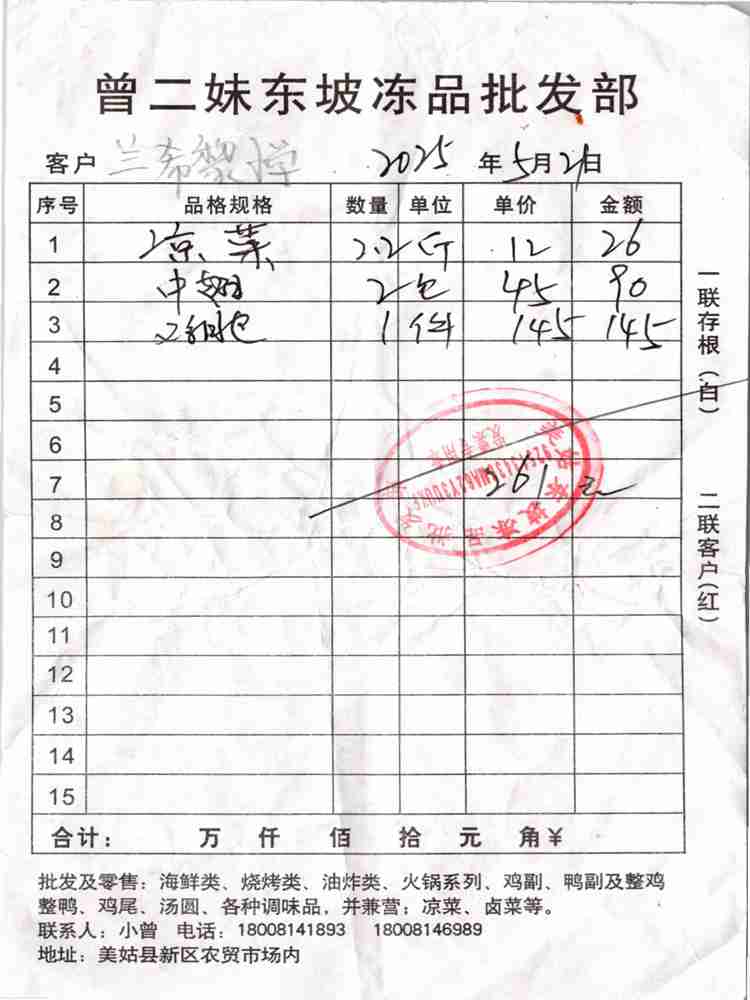 曾二妹东坡冻品批发部
客户 兰希黎 2025年5月21日
序号 品格规格 数量 单位 单价 金额
1 凉菜 2.2 斤 12 26
2 中翅 2 包 45 90
3 1 件 145 145
4
5
6
7 261元
8
9
10
11
12
13
14
15
合计： 万 仟 佰 拾 元 角￥
一联存根（白） 二联客户（红）
发票专用章
批发及零售：海鲜类、烧烤类、油炸类、火锅系列、鸡副、鸭副及整鸡
整鸭、鸡尾、汤圆、各种调味品，并兼营；凉菜、卤菜等。
联系人：小曾 电话：18008141893 18008146989
地址：美姑县新区农贸市场内